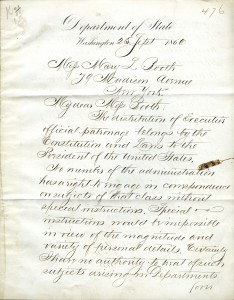 476
Department of State
Washington 25 Sept 1866
Miss Mary L. Booth
79 Madison Avenue
New York
My dear Miss Booth
The distribution of Executive
official patronage belongs by the
Constitution and Laws to the
President of the United States.
No member of the administration
has a right to engage in correspondence
on subjects of that class without
special instructions. Special
instructions would be impossible
in view of the magnitude and
variety of personal details. Certainly
I have no authority to treat of such
subjects arising in Departments